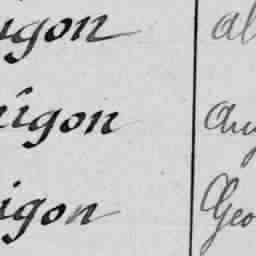 igon al
igon Aug
igon Geo